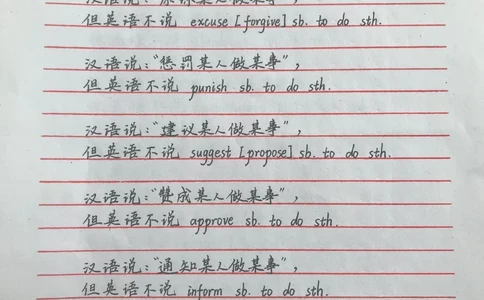 汉语说:"原谅某人做某事",
但英语不说 excuse [forgive] sb. to do sth.
汉语说:"惩罚某人做某事",
但英语不说 punish sb. to do sth.
汉语说:"建议某人做某事",
但英语不说 suggest [propose] sb. to do sth.
汉语说:"赞成某人做某事",
但英语不说 approve sb. to do sth.
汉语说:"通知某人做某事",
但英语不说 inform sb. to do sth.